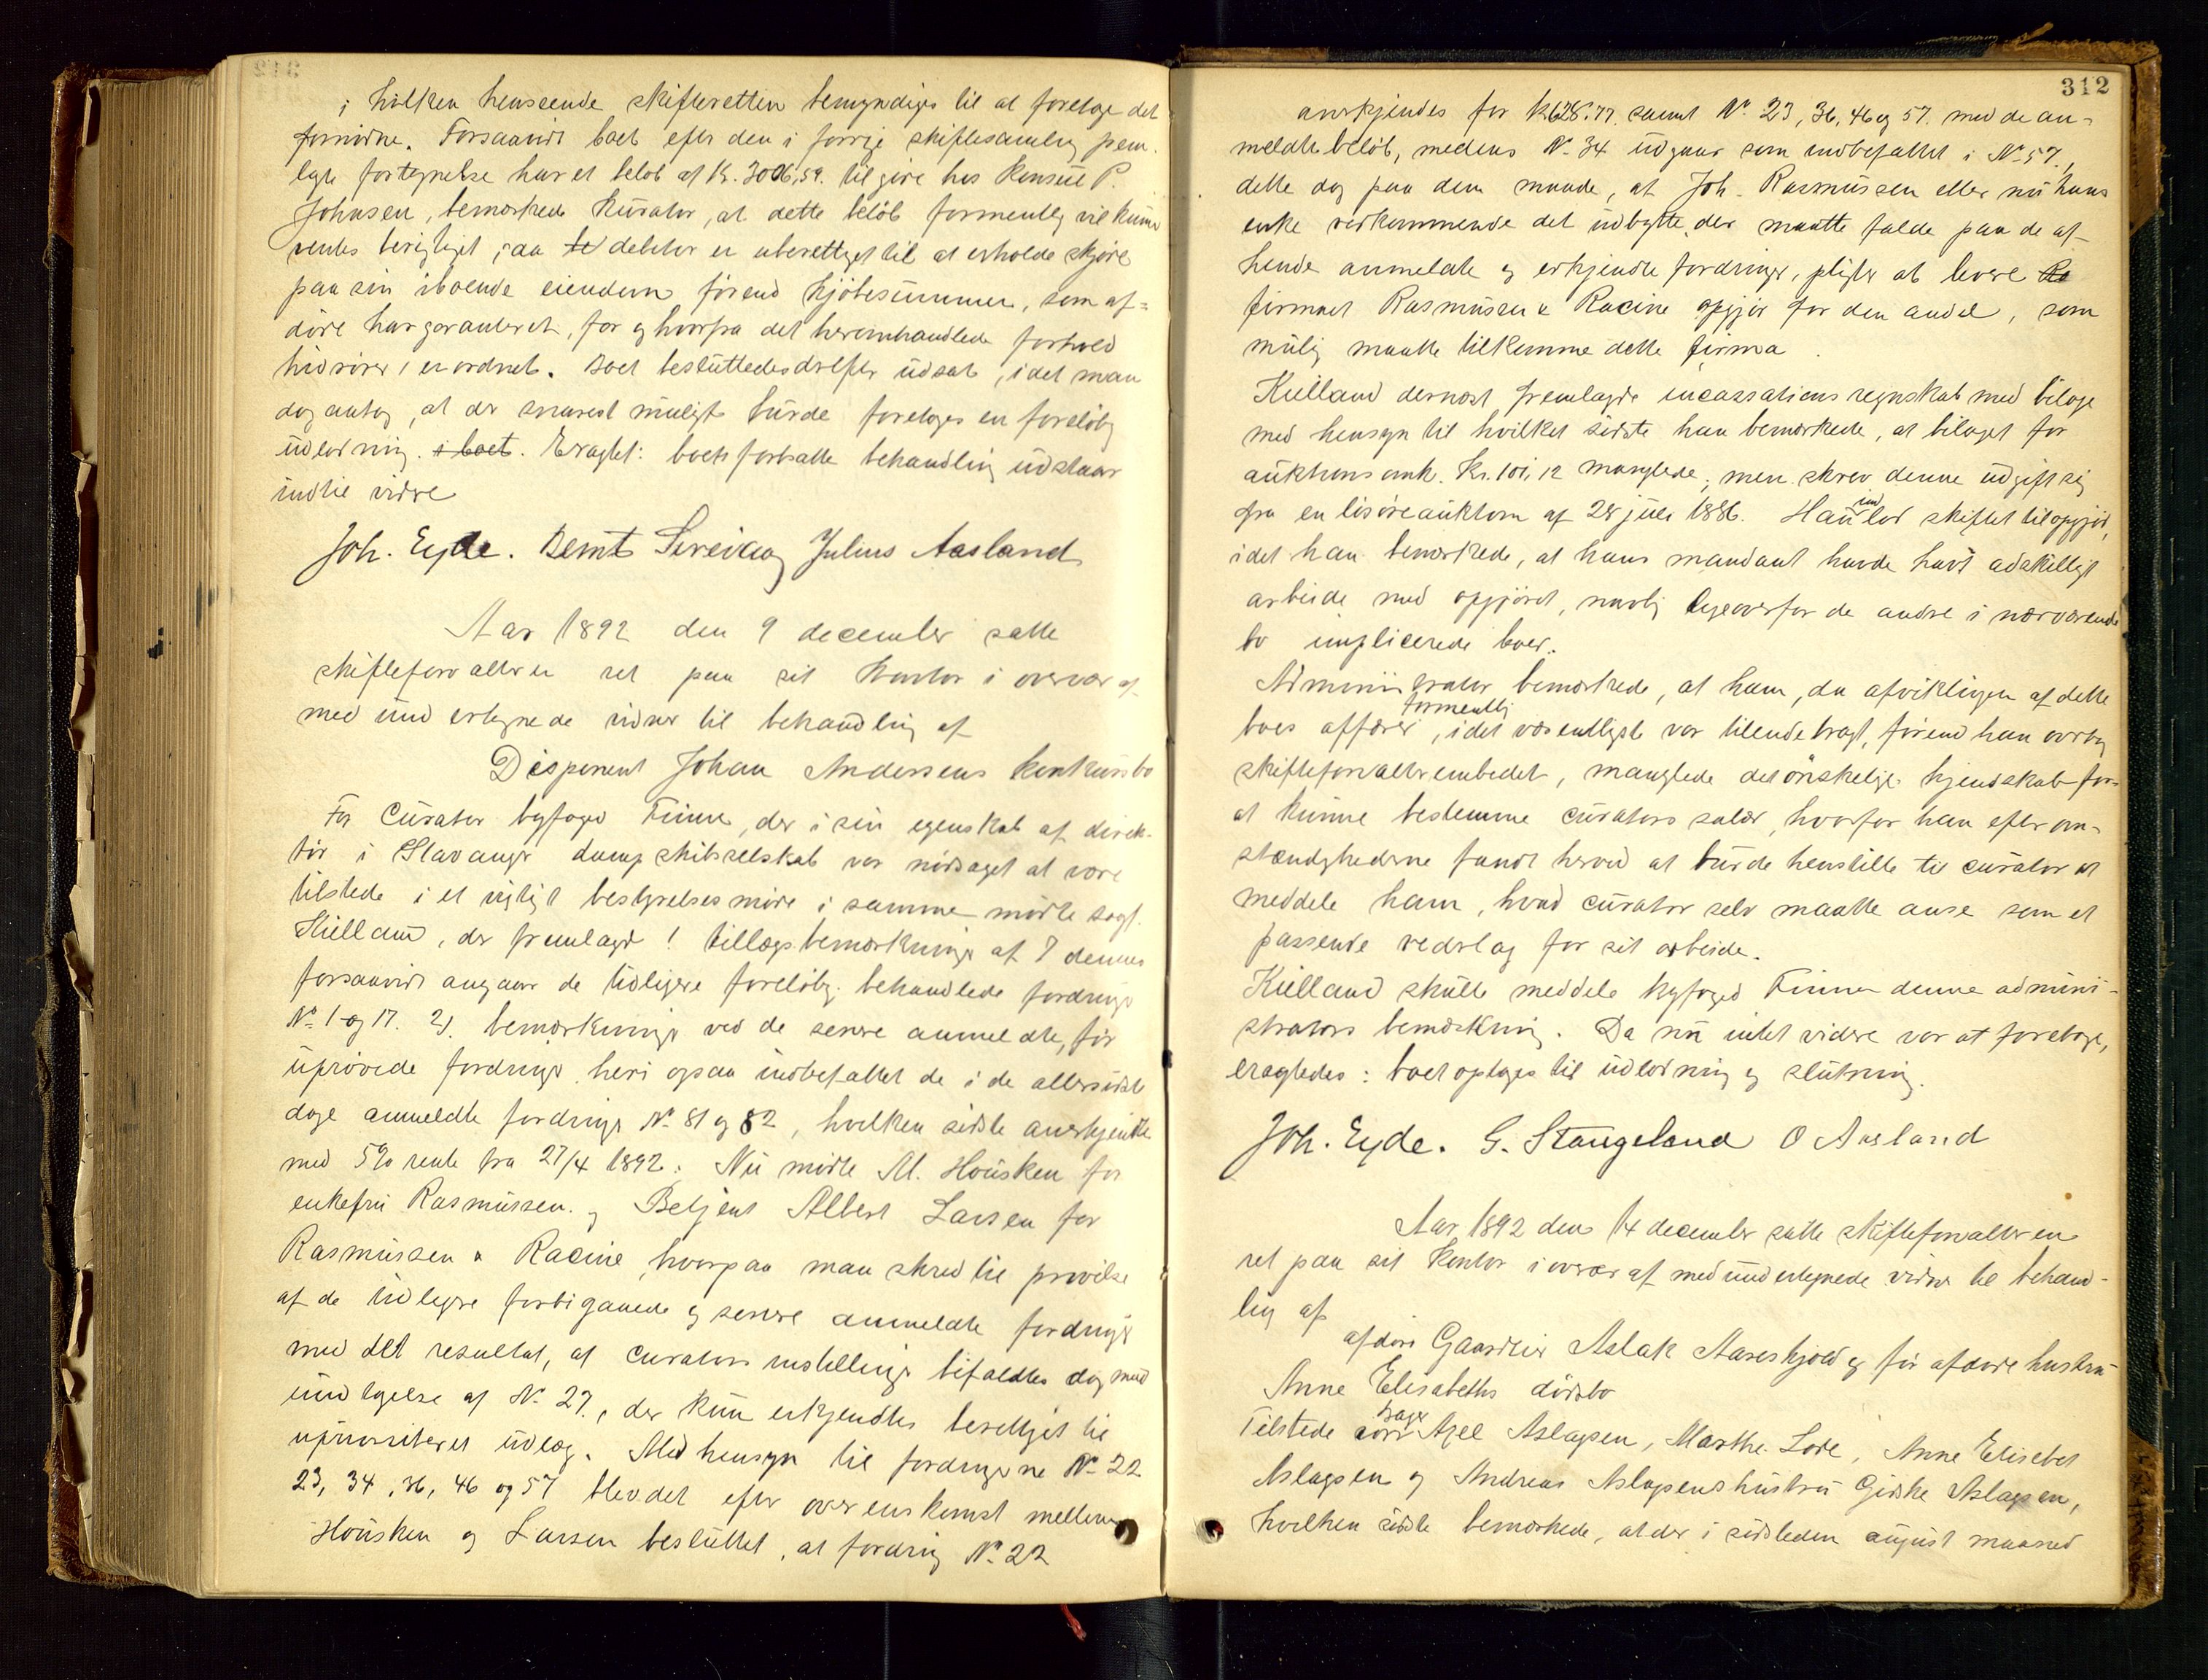 i hvilken henseende skifteretten bemyndiges til at foretage det
fornødne. Forsaavidt boet efter den i forrige skiftesamling frem-
lagte fortegnelse har et beløb af Kr. 3006,59. tilgode hos Konsul P.
Johnsen, bemærkede Kurator, at dette beløb formentlig vil kunne
ventes berigtiget, saa debitor er uberettiget til at erholde skjøde
paa sin iboende eiendom førend kjøbesummen, som af-
døde har garanteret, for og hvorfra det heromhandlede forhold
hidrører, er ordnet. Boet besluttedes derefter udsat, idet man
dog antog, at der snarest muligt burde foretages en foreløbig
udlodning i boet. Eragtet: boets fortsatte behandling udstaar
indtil videre
Joh. Eyde. Bernt Sirevaag Julius Aasland
Aar 1892 den 9 december satte
skifteforvalteren ret paa sit kontor i overvær af
med undertegnede vidner til behandling af
Disponent Johan Andersens konkursbo
For Curator byfoged Finne, der i sin egenskab af direk-
tør i Stavanger dampskibsselskab var nødsaget at være
tilstede i et vigtigt bestyrelsesmøde i samme mødte sagf.
Kielland, der fremlagde 1 tillægsbemærkninger af 7 dennes
forsaavidt angaar de tidligere foreløbig behandlede fordringer
No 1 og 17. 2) bemærkninger ved de senere anmeldte, før
uprøvede fordringer heri ogsaa indbefattet de i de allersidste
dage anmeldte fordringer No 81 og 82, hvilken sidste anerkjendte
med 5% rente fra 27/4 1892. Nu mødte M. Housken for
enkefru Rasmussen og Betjent Albert Larsen for
Rasmussen & Racine, hvorpaa man skred til prøvelse
af de tidligere forbigaaede og senere anmeldte fordringer
med det resultat, at curators indstillinger bifaldtes dog med
undtagelse af No 27, der kun erkjendtes berettiget til
uprioriteret udlæg. Med hensyn til fordringerne No 22
23, 34, 36, 46 og 57 blev det efter overenskomst mellem
Housken og Larsen besluttet, at fordring No 22
312
anerkjendes for K628.77 samt No 23, 36, 46 og 57. med de an-
meldte beløb, medens No 34 udgaar som indbefattet i No 57,
dette dog paa den maade, at Joh. Rasmussen eller nu hans
enke vedkommende det udbytte, der maatte falde paa de af
hende anmeldte og erkjendte fordringer, pligter at levere
firmaet Rasmussen & Racine opgjør for den andel, som
mulig maatte tilkomme dette firma.
Kielland dernæst fremlagde incassations regnskab med bilage
med hensyn til hvilket sidste han bemærkede, at bilaget for
auktions omk. Kr. 101,12 manglede, men skrev denne udgift sig
fra en løsøreauktion af 28 juli 1886. Han indlod skiftet til opgjør,
idet han bemærkede, at hans mandant havde havt adskilligt
arbeide med opgjøret, navnlig ligeoverfor de andre i nærværende
bo implicerede boer.
Administrator bemærkede, at ham, da afviklingen af dette
boes affærer formentlig, idet væsentligste var tilendebragt, førend han overtog
skifteforvalterembedet, manglede det ønskelige kjendskab for
at kunne bestemme curators salær, hvorfor han efter om-
stændighederne fandt herved at burde henstille til curator at
meddele ham, hvad curator selv maatte anse som et
passende vederlag for sit arbeide.
Kielland skulle meddele byfoged Finne denne admini-
strators bemærkning. Da nu intet videre var at foretage,
eragtedes: boet optages til udlodning og slutning.
Joh. Eyde. G. Stangeland O Aasland
Aar 1892 den 14 december satte skifteforvalteren
ret paa sit kontor i overvær af medundertegnede vidner til behand-
ling af
afdøde Gaardeier Aslak Aareskjold og før afdøde hustru
Anne Elisabeths dødsbo
Tilstede var bager Axel Aslagsen, Marthe Lode, Anne Elisebet
Aslagsen og Andreas Aslagsens hustru Gidske Aslagsen,
hvilken sidste bemærkede, at der i sidstleden august maaned